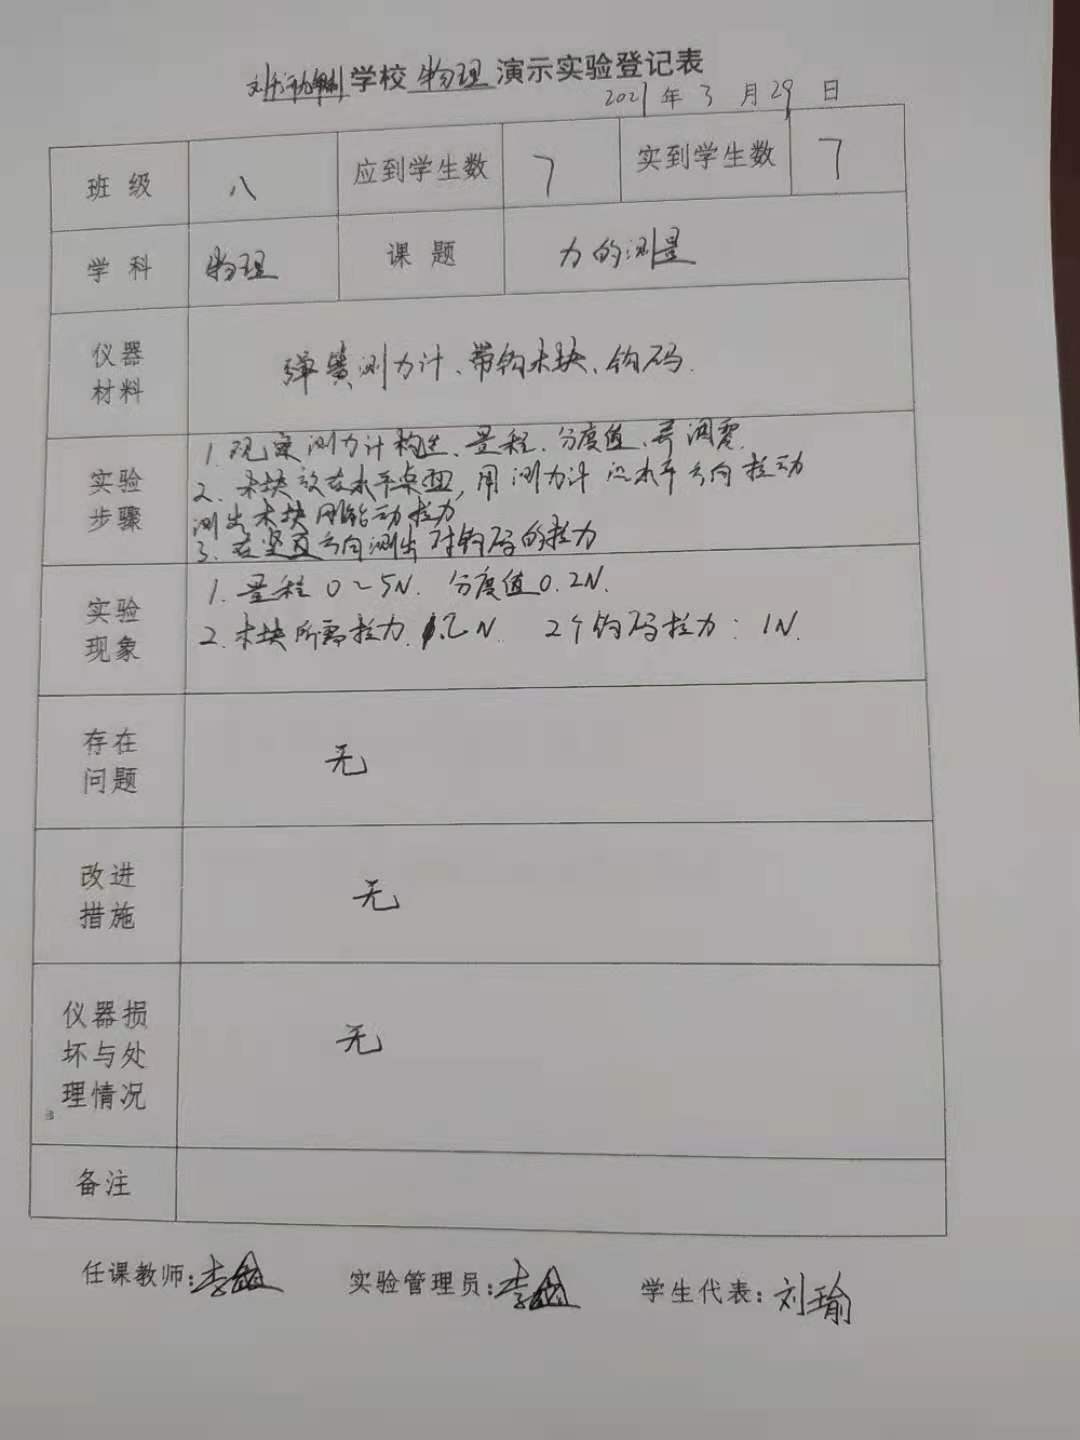 学校 物理 演示实验登记表
2021 年 3 月 29 日
班 级 八 应到学生数 7 实到学生数 7
学 科 物理 课 题 力的测量
仪器
材料
弹簧测力计、带钩木块、钩码.
实验
步骤
1. 观察测力计构造、量程、分度值、并调零.
2. 木块放在水平桌面, 用测力计沿水平方向拉动
测出木块刚能动拉力
3. 在竖直方向测出对钩码的拉力
实验
现象
1. 量程 0~5N. 分度值0.2N.
2. 木块所需拉力 N. 2个钩码拉力: 1N.
存在
问题
无
改进
措施
无
仪器损
坏与处
理情况
无
备注
任课教师:李 实验管理员:李 学生代表:刘瑜